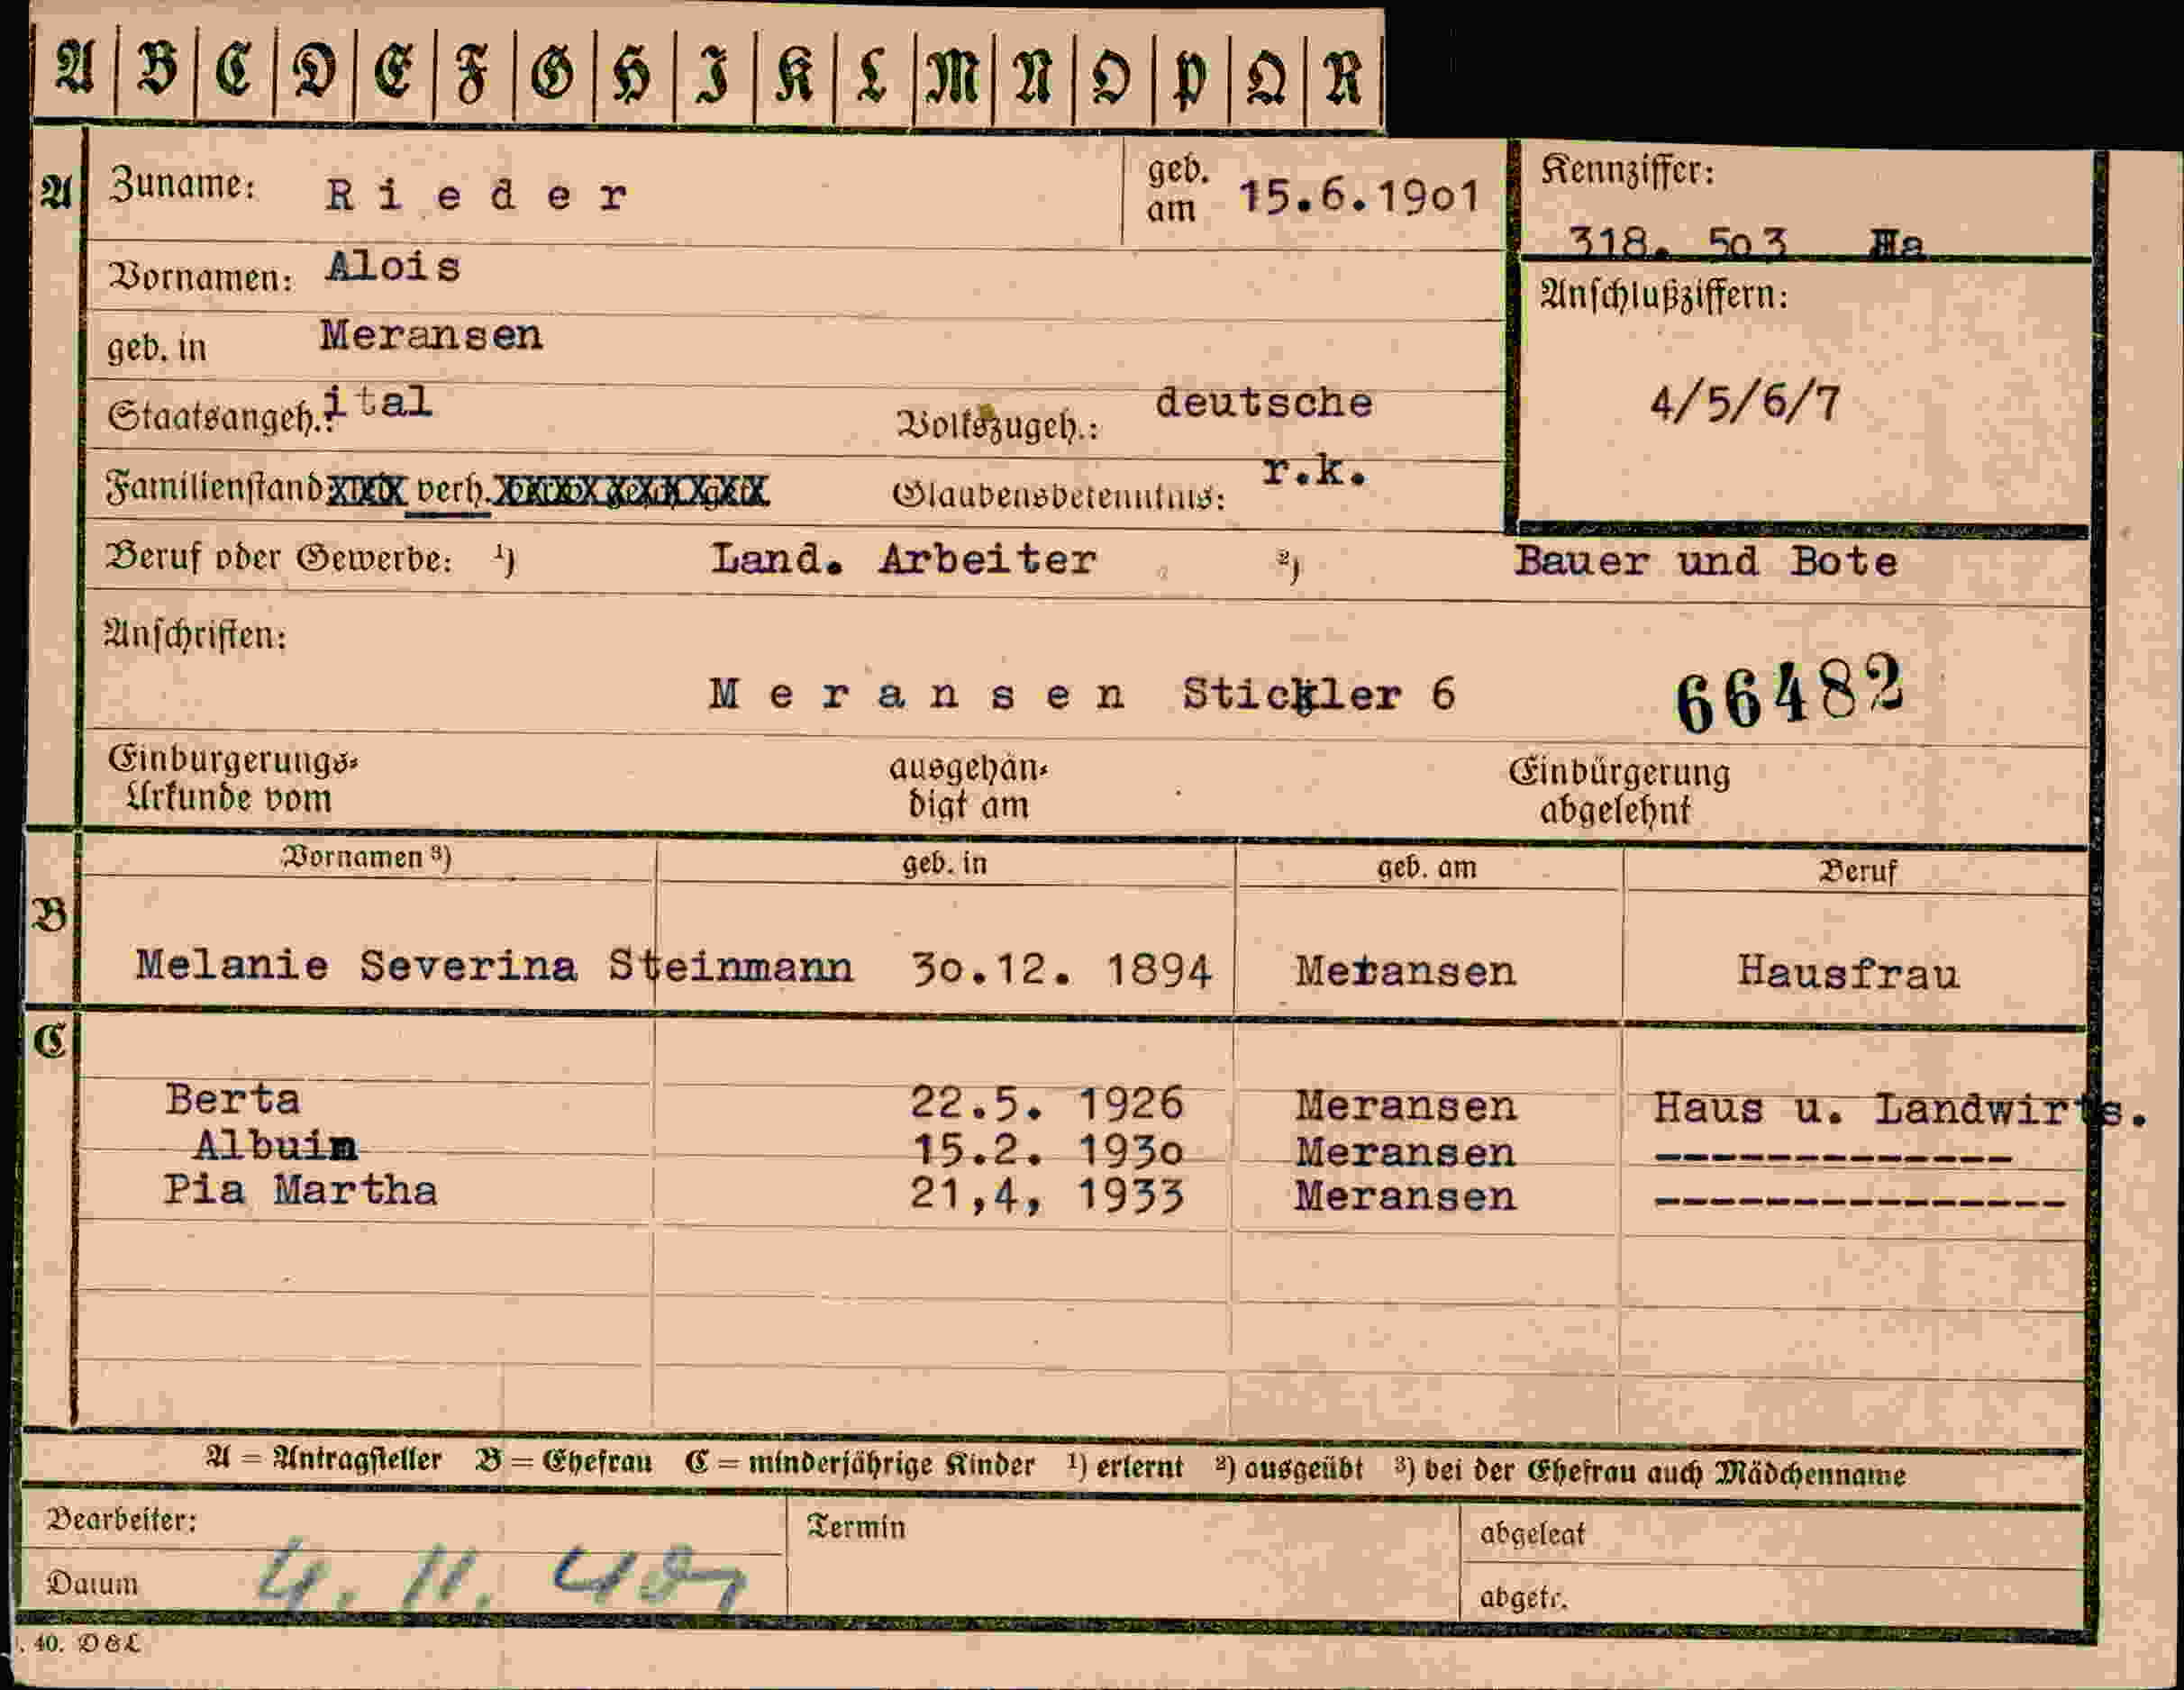 A B C D E F G H I K L M N O P Q R
A Zuname: Rieder geb. am 15.6.19o1 Kennziffer:
318. 5o3
Vornamen: Alois
Anschlußziffern:
geb. in Meransen
Staatsangeh.: ital Volkszugeh.: deutsche 4/5/6/7
Familienstand verh. Glaubensbekenntnis: r.k.
Beruf oder Gewerbe: ¹) Land. Arbeiter ²) Bauer und Bote
Anschriften:
Meransen Stickler 6 66482
Einbürgerungs- ausgehän- Einbürgerung
Urkunde vom digt am abgelehnt
Vornamen ³) geb. in geb. am Beruf
B
Melanie Severina Steinmann 3o.12. 1894 Meransen Hausfrau
C
Berta 22.5. 1926 Meransen Haus u. Landwirts.
Albuin 15.2. 193o Meransen -------------
Pia Martha 21,4, 1933 Meransen ---------------
A = Antragsteller B = Ehefrau C = minderjährige Kinder ¹) erlernt ²) ausgeübt ³) bei der Ehefrau auch Mädchenname
Bearbeiter: Termin abgelegt
Datum 4. 11. abgetr.
. 40. D&L